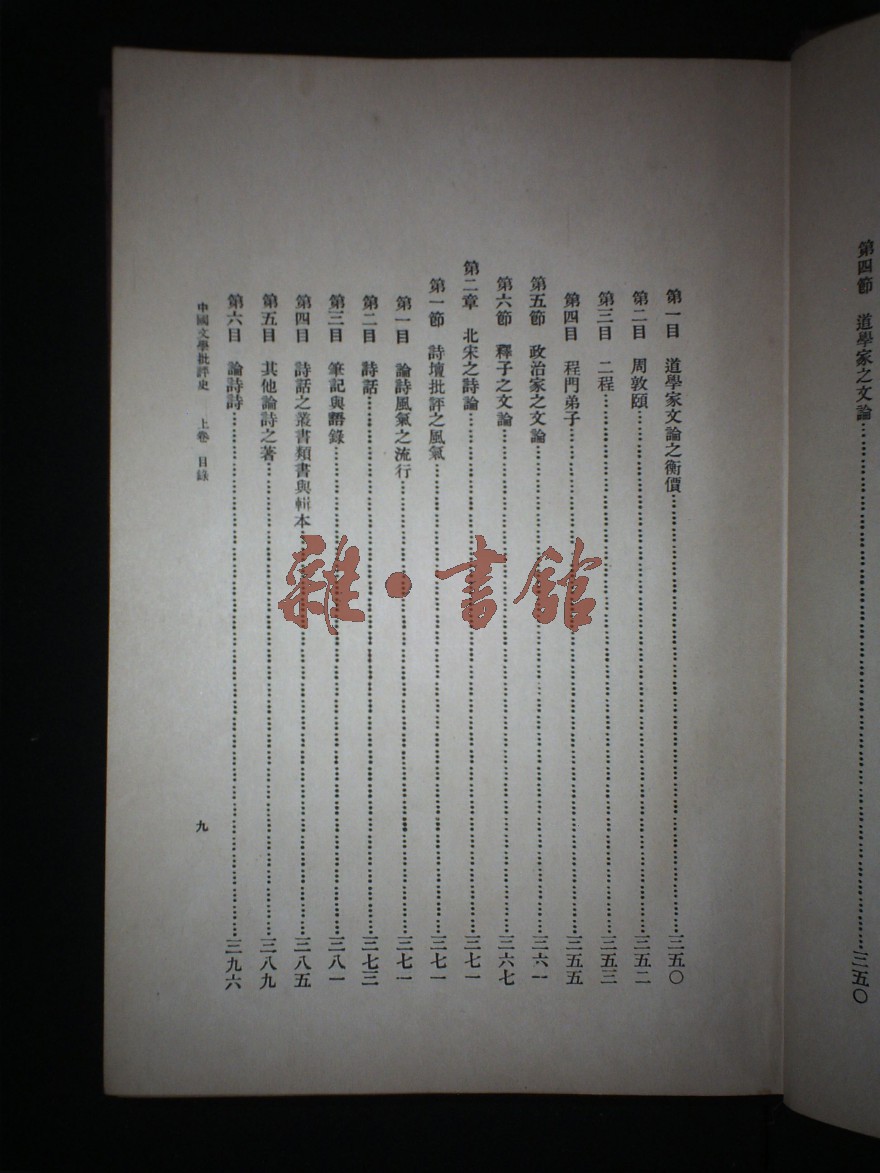 第四節　道學家之文論……三五〇
第一目　道學家文論之衡價……三五〇
第二目　周敦頤……三五二
第三目　二程……三五三
第四目　程門弟子……三五五
第五節　政治家之文論……三六一
第六節　釋子之文論……三六七
第二章　北宋之詩論……三七一
第一節　詩壇批評之風氣……三七一
第一目　論詩風氣之流行……三七一
第二目　詩話……三七三
第三目　筆記與語錄……三八一
第四目　詩話之叢書類書與輯本……三八五
第五目　其他論詩之著……三八九
第六目　論詩詩……三九六
中國文學批評史　上卷　目錄　九
雜·書館